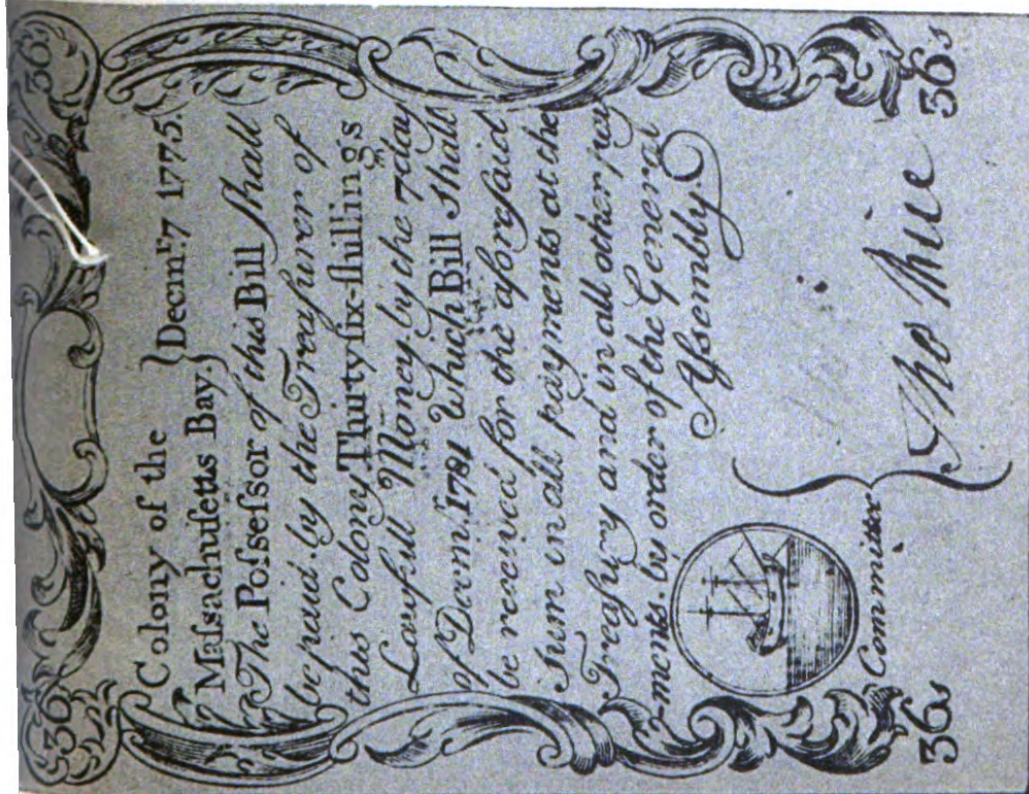 36s 36
Colony of the
Maſsachuſetts Bay. } Decm.r 7 1775.
The Poſseſsor of this Bill ſhall
be paid. by the Treaſurer of
this Colony Thirty ſix-ſhillings
Lawfull Money. by the 7 day
of Decm.r 1781 which Bill ſhall
be received for the aforeſaid
ſum in all payments at the
Treaſury and in all other pay
-ments. by order of the General
Aſsembly.
Committee
36s 36s